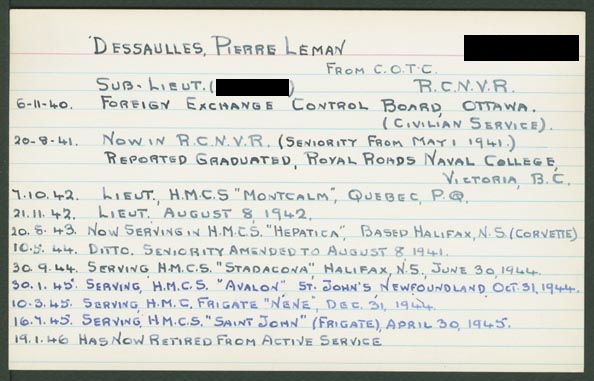 DESSAULLES, PIERRE LEMAN
FROM C.O.T.C.
SUB-LIEUT. ( ) R.C.N.V.R.
6-11-40. FOREIGN EXCHANGE CONTROL BOARD, OTTAWA.
(CIVILIAN SERVICE).
20-8-41. NOW IN R.C.N.V.R. (SENIORITY FROM MAY 1 1941.)
REPORTED GRADUATED, ROYAL ROADS NAVAL COLLEGE,
VICTORIA, B.C.
7.10.42. LIEUT., H.M.C.S "MONTCALM", QUEBEC, P.Q.
21.11.42. LIEUT. AUGUST 8, 1942.
20.8.43. NOW SERVING IN H.M.C.S. "HEPATICA", BASED HALIFAX, N.S. (CORVETTE)
10.5.44. DITTO. SENIORITY AMENDED TO AUGUST 8, 1941.
30.9.44. SERVING H.M.C.S. "STADACONA", HALIFAX, N.S., JUNE 30, 1944.
30.1.45. SERVING, H.M.C.S. "AVALON" ST. JOHN'S NEWFOUNDLAND, OCT. 31, 1944.
10.3.45. SERVING, H.M.C. FRIGATE "NENE", DEC. 31, 1944.
16.7.45. SERVING, H.M.C.S. "SAINT JOHN" (FRIGATE), APRIL 30, 1945.
19.1.46 HAS NOW RETIRED FROM ACTIVE SERVICE